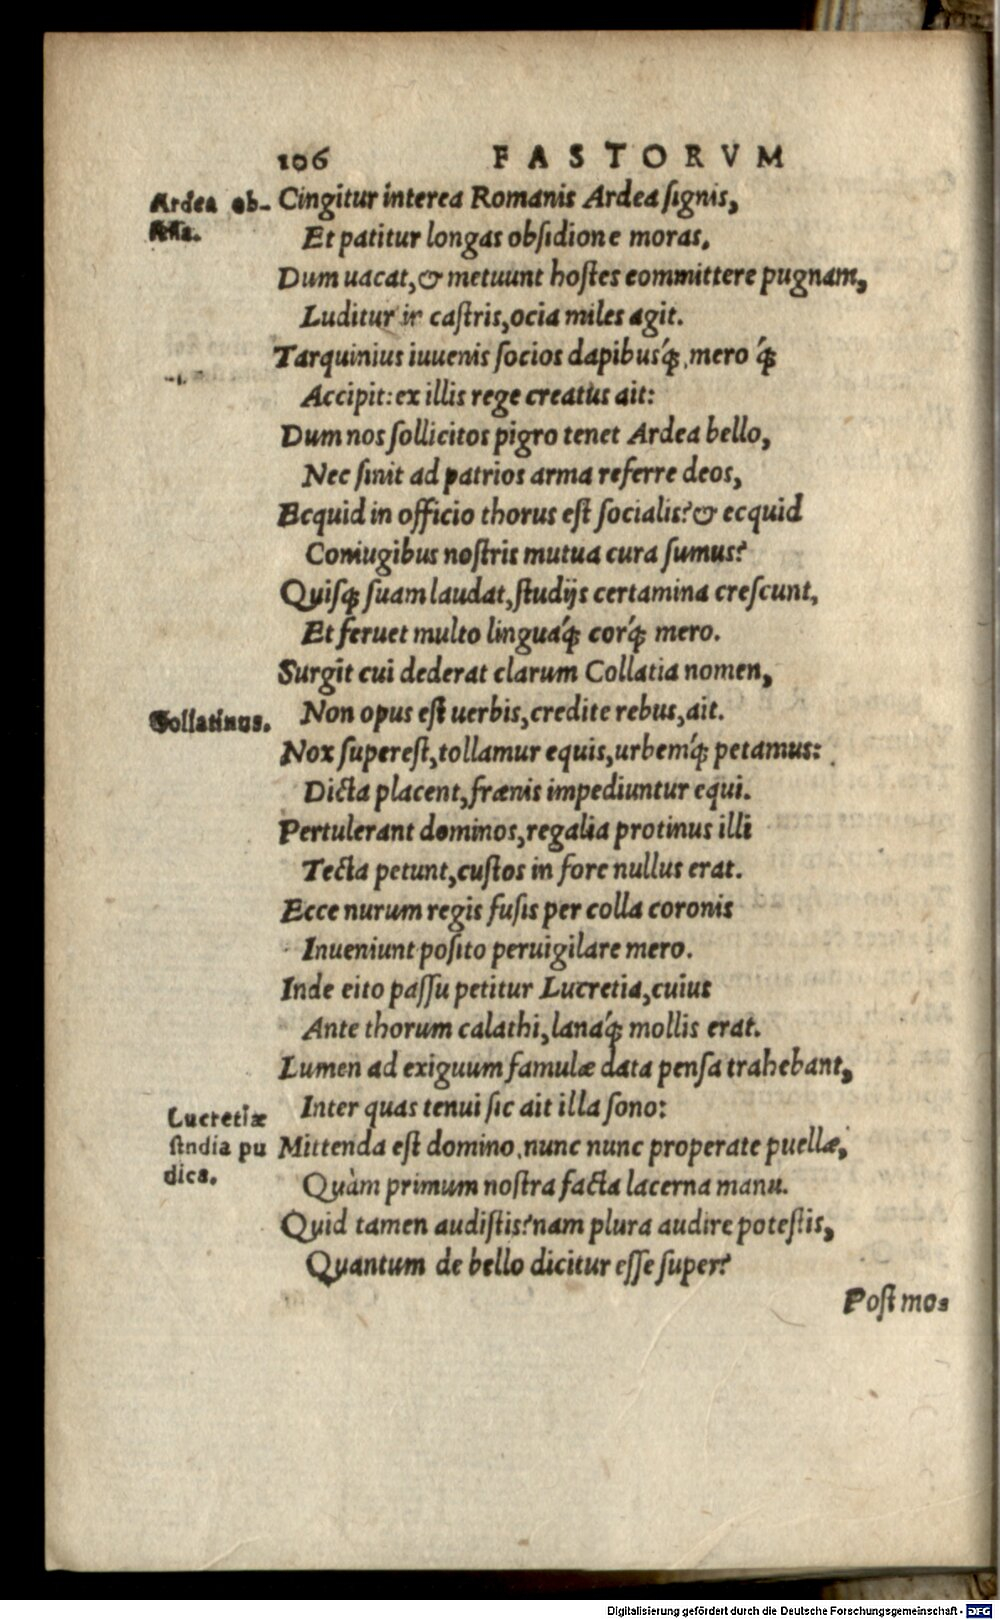 106 FASTORVM
Ardea ob-
sessa.
Cingitur interea Romanis Ardea signis,
Et patitur longas obsidione moras.
Dum uacat, & metuunt hostes committere pugnam,
Luditur in castris, ocia miles agit.
Tarquinius iuuenis socios dapibusq́;, mero q́;
Accipit: ex illis rege creatus ait:
Dum nos sollicitos pigro tenet Ardea bello,
Nec sinit ad patrios arma referre deos,
Ecquid in officio thorus est socialis? & ecquid
Coniugibus nostris mutua cura sumus?
Quisq; suam laudat, studijs certamina crescunt,
Et feruet multo linguaq́; corq́; mero.
Surgit cui dederat clarum Collatia nomen,
Collatinus.
Non opus est uerbis, credite rebus, ait.
Nox superest, tollamur equis, urbemq́; petamus:
Dicta placent, frænis impediuntur equi.
Pertulerant dominos, regalia protinus illi
Tecta petunt, custos in fore nullus erat.
Ecce nurum regis fusis per colla coronis
Inueniunt posito peruigilare mero.
Inde cito passu petitur Lucretia, cuius
Ante thorum calathi, lanaq́; mollis erat.
Lumen ad exiguum famulæ data pensa trahebant,
Inter quas tenui sic ait illa sono:
Lucretiæ
studia pu
dica.
Mittenda est domino, nunc nunc properate puellæ,
Quàm primum nostra facta lacerna manu.
Quid tamen audistis? nam plura audire potestis,
Quantum de bello dicitur esse super?
Post mos
Digitalisierung gefördert durch die Deutsche Forschungsgemeinschaft - DFG